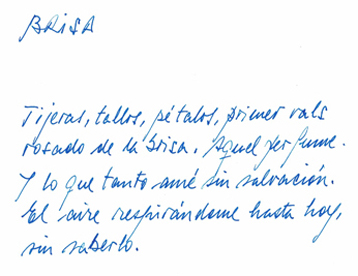 BRISA
Tijeras, tallos, pétalos, primer vals
rosado de la brisa. Aquel perfume.
Y lo que tanto amé sin salvación.
El aire respirándome hasta hoy,
sin saberlo.